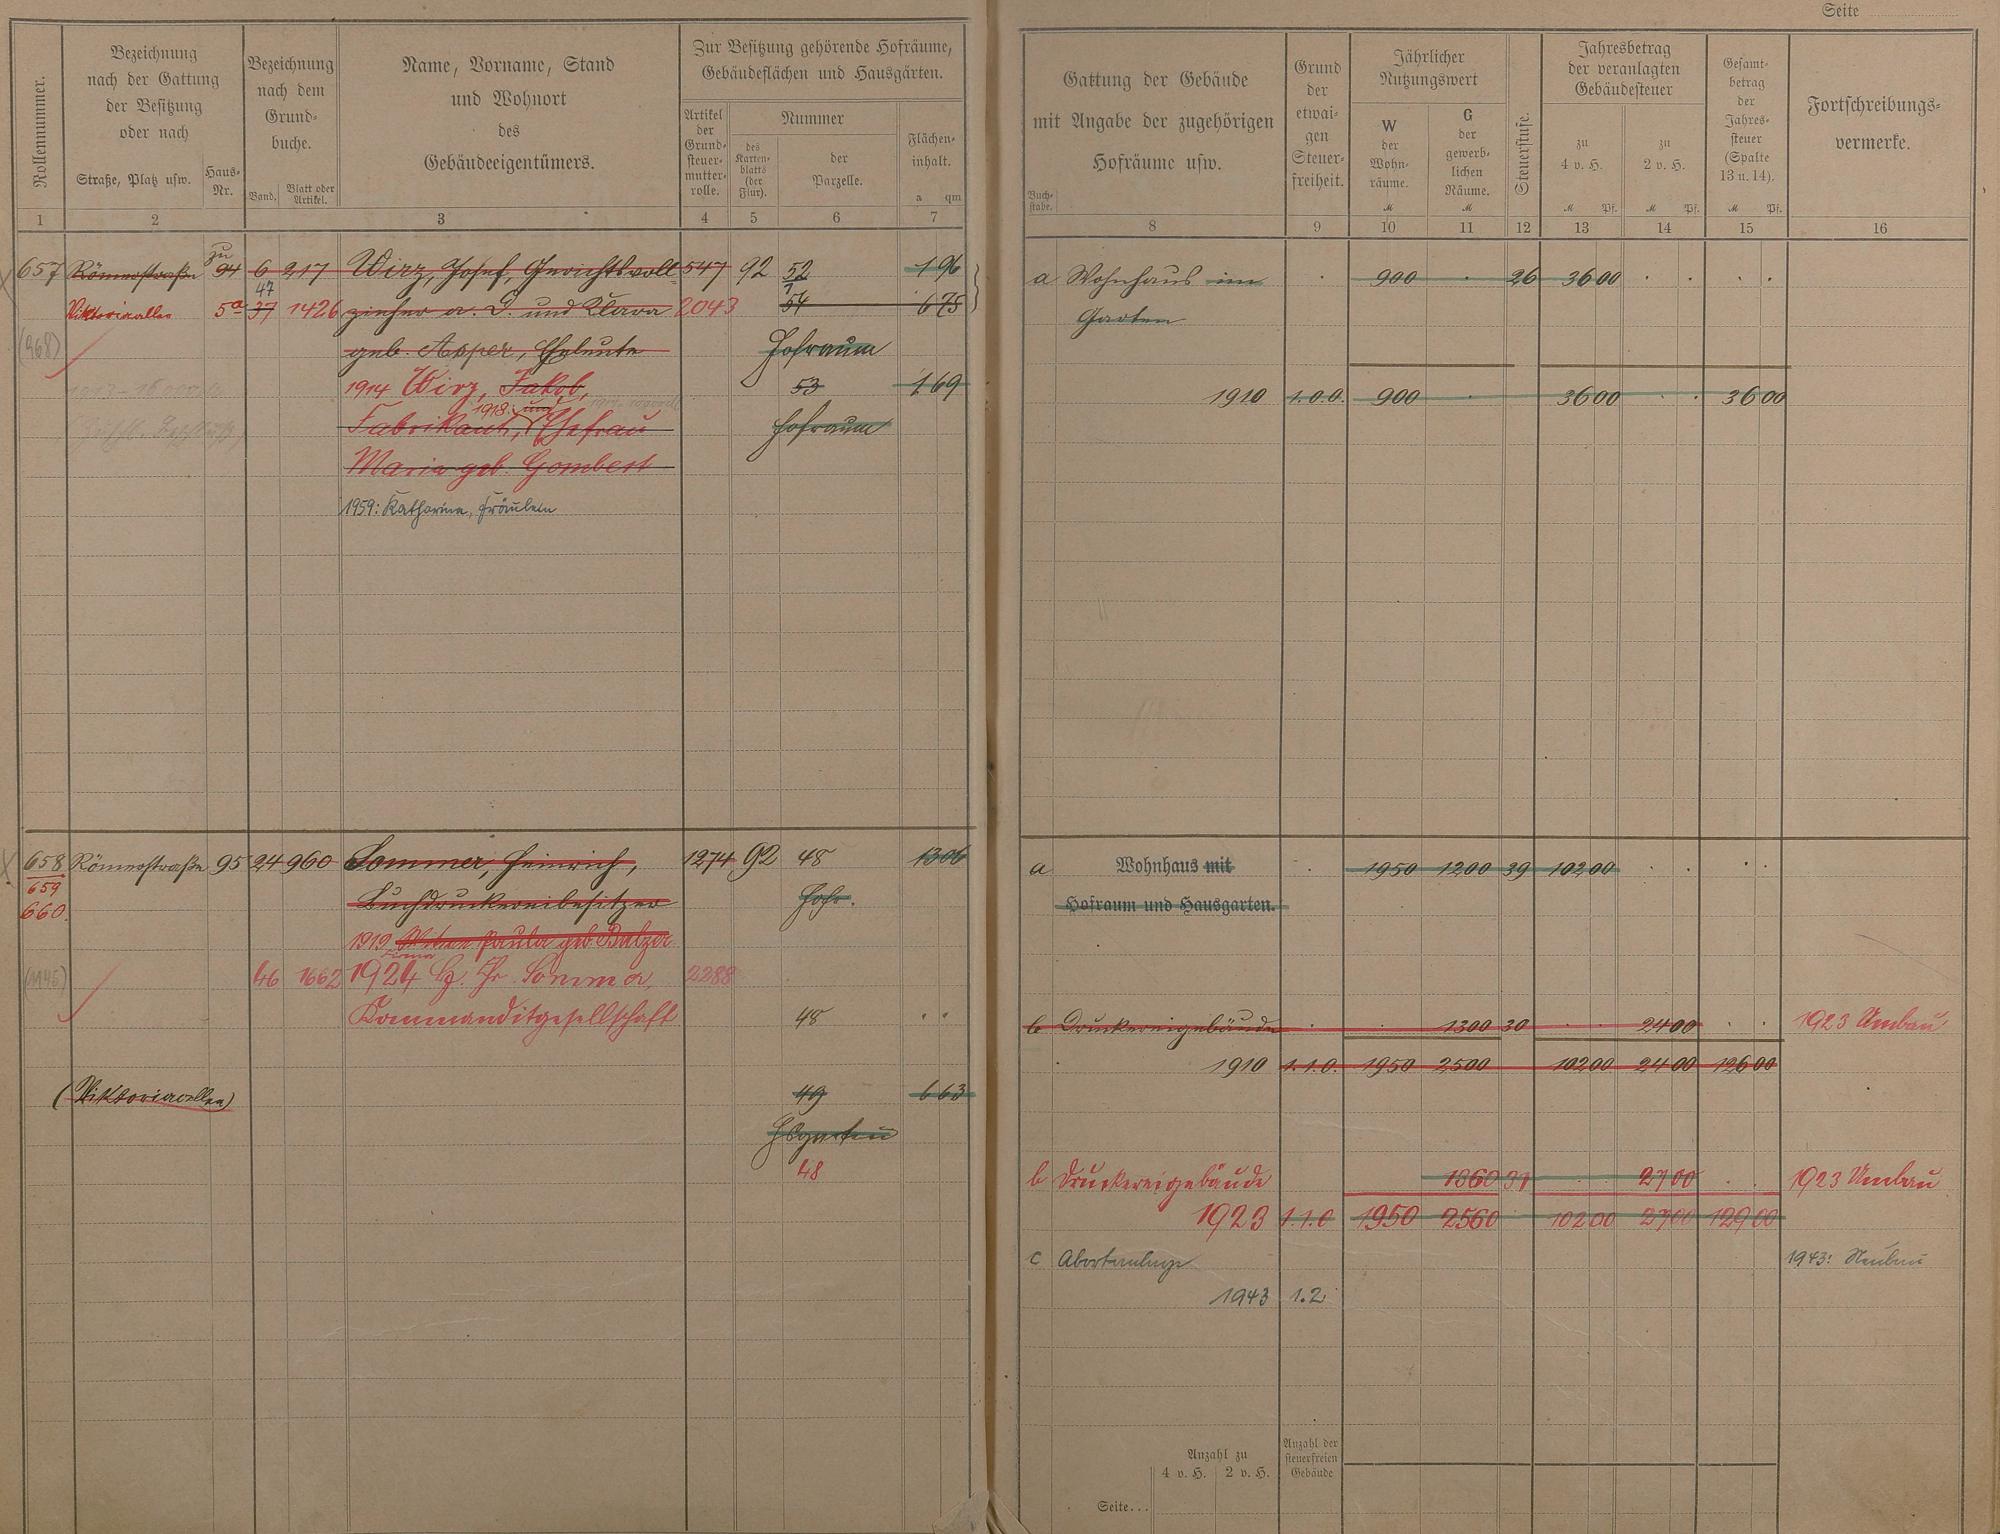 Seite
Rollennummer.
Bezeichnung
nach der Gattung
der Besitzung
oder nach
Straße, Platz usw.
Haus-
Nr.
Bezeichnung
nach dem
Grund-
buche.
Band.
Blatt oder
Artikel.
Name, Vorname, Stand
und Wohnort
des
Gebäudeeigentümers.
Zur Besitzung gehörende Hofräume,
Gebäudeflächen und Hausgärten.
Artikel
der
Grund-
steuer-
mutter-
rolle.
Nummer
des
Karten-
blatts
(der
Flur).
der
Parzelle.
Flächen-
inhalt.
a qm
Gattung der Gebäude
mit Angabe der zugehörigen
Hofräume usw.
Buch-
stabe.
Grund
der
etwai-
gen
Steuer-
freiheit.
Jährlicher
Nutzungswert
W
der
Wohn-
räume.
M
G
der
gewerb-
lichen
Räume.
M
Steuerstufe.
Jahresbetrag
der veranlagten
Gebäudesteuer
zu
4 v. H.
M Pf.
zu
2 v. H.
M Pf.
Gesamt-
betrag
der
Jahres-
steuer
(Spalte
13 u. 14).
M Pf.
Fortschreibungs-
vermerke.
1 2 3 4 5 6 7 8 9 10 11 12 13 14 15 16
zu
657 Römerstraße 94 6 217 Wirz, Josef, Gerichtsvoll- 547 92 52 1 96 a Wohnhaus im 900 26 36 00
47
Viktoriaallee 5a 37 1426 zieher a. D. und Klara 2043 54 6 75 Garten
(968) geb. Asper, Eheleute Hofraum
1914 Wirz, Jakob, 53 1 69 1910 1.0.0. 900 36 00 36 00
1918: und
Fabrikant, Ehefrau Hofraum
Maria geb. Gombert
1959: Katharina, Fräulein
658 Römerstraße 95 24 960 Sommer, Heinrich, 1274 92 48 13 06 a Wohnhaus mit 1950 1200 39 102 00
659
660 Buchdruckereibesitzer Hofr. Hofraum und Hausgarten.
1919 Witwe Paula geb. Balzer
Firma
(1145) 46 1662 1924 Hr. Sommer, 2288
Kommanditgesellschaft 48 b Druckereigebäude 1300 30 24 00 1923 Umbau
1910 1.1.0. 1950 2500 102 00 24 00 126 00
(Viktoriaallee) 49 6 63
Hsgarten
48 b Druckereigebäude 1360 31 27 00 1923 Umbau
1923 1.1.0 1950 2560 102 00 27 00 129 00
c Abortanlage 1943: Neubau
1943 1.2.
Anzahl zu
4 v. H. 2 v. H.
Anzahl der
steuerfreien
Gebäude
Seite...